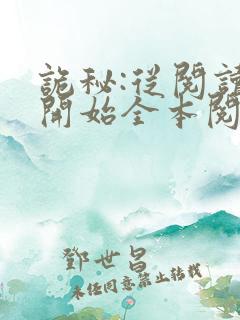 詭秘:從閱讀
開始全本閱
鄧世昌
未經同意禁止轉載